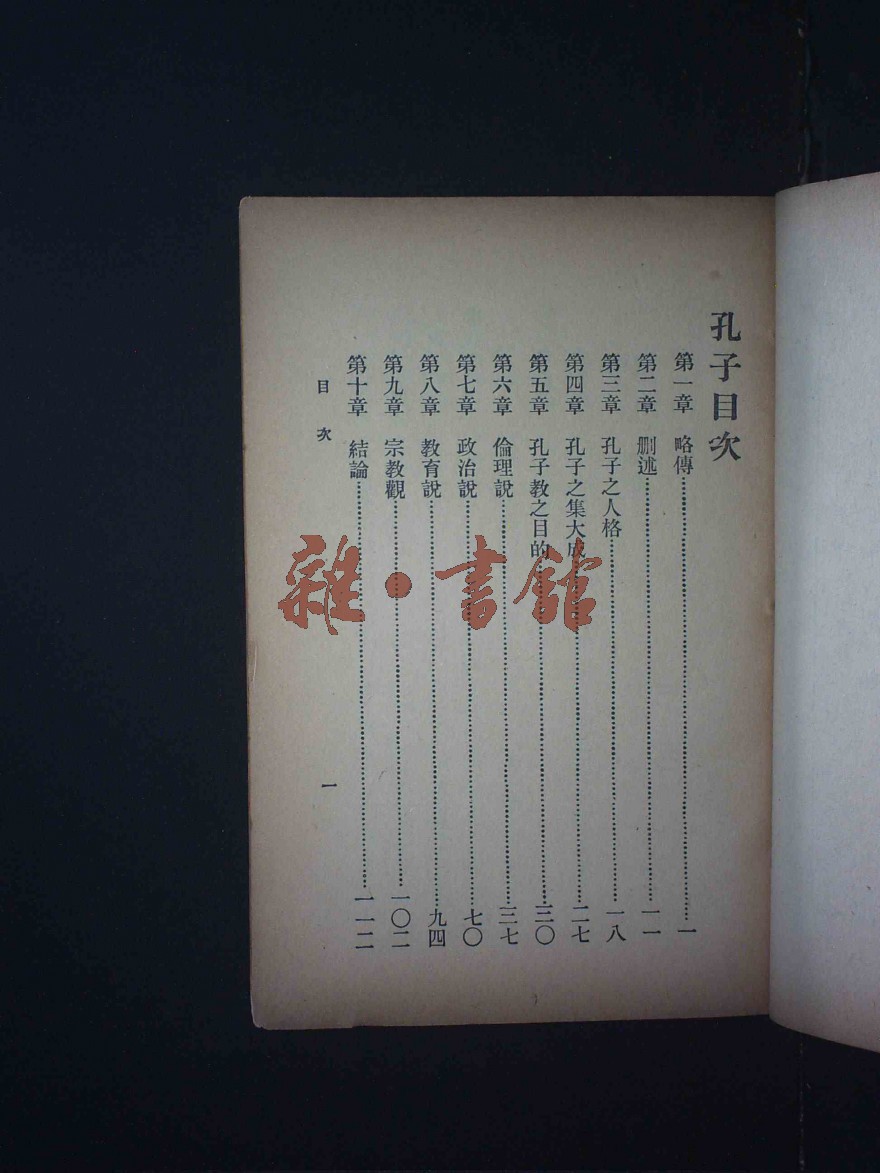 孔子目次
第一章 略傳……一
第二章 刪述……一一
第三章 孔子之人格……一八
第四章 孔子之集大成……二七
第五章 孔子教之目的……三〇
第六章 倫理說……三七
第七章 政治說……七〇
第八章 教育說……九四
第九章 宗教觀……一〇二
第十章 結論……一一二
目次 一
雜·書館